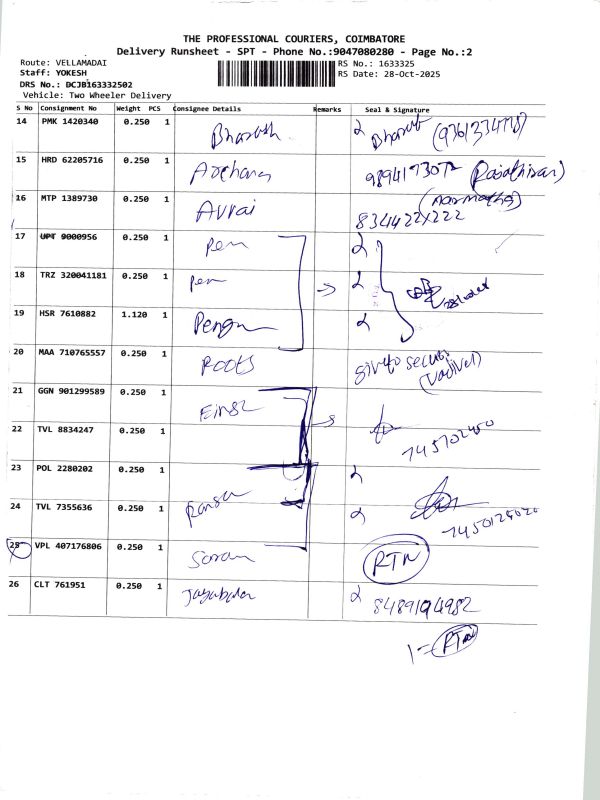 THE PROFESSIONAL COURIERS, COIMBATORE
Delivery Runsheet - SPT - Phone No.:9047080280 - Page No.:2
Route: VELLAMADAI
Staff: YOKESH
DRS No.: DCJB163332502
Vehicle: Two Wheeler Delivery
RS No.: 1633325
RS Date: 28-Oct-2025
S No Consignment No Weight PCS Consignee Details Remarks Seal & Signature
14 PMK 1420340 0.250 1 Bharath Bharath (9361334778)
15 HRD 62205716 0.250 1 Archana 9894173072
16 MTP 1389730 0.250 1 Avrai (narmatha) 834422x222
17 UPT 9000956 0.250 1 Pen
18 TRZ 320041181 0.250 1 Pen
19 HSR 7610882 1.120 1 Pengu
20 MAA 710765557 0.250 1 Roots (Vadivel)
21 GGN 901299589 0.250 1 Einsz
22 TVL 8834247 0.250 1
23 POL 2280202 0.250 1
24 TVL 7355636 0.250 1 Ransar
25 VPL 407176806 0.250 1 Saran RTN
26 CLT 761951 0.250 1 Jayabalan 8489194982
1 = RTN